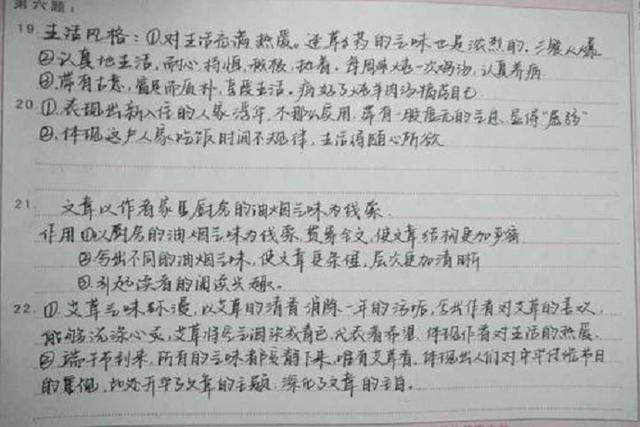 第六题：
19. 生活风格：①对生活充满热爱。连草药的气味也是浓烈的.三餐火爆
②认真地生活，耐心持恒，积极，执着.每周麻烦一次鸡汤，认真养病
③带有古意，简质朴，直度生活。病好了炖羊肉汤犒劳自己
20. ①.表现出新入住的人家浮华，不那么实用，带有一股虚无的气息.显得"孱弱"
②.体现这户人家吃饭时间不规律，生活得随心所欲
21. 文章以作者家里厨房的油烟气味为线索.
作用①以厨房的油烟气味为线索，贯穿全文，使文章结构更加严密
②写出不同的油烟气味，使文章更条理，层次更加清晰
③.引起读者的阅读兴趣。
22. ①.艾草气味弥漫，以艾草的清香消除一年的污垢，写出作者对艾草的喜欢，
能够洗涤心灵，艾草将空气润染成青色，代表着希望.体现作者对生活的热爱.
②.端午节到来，所有的气味都安静下来，唯有艾草香.体现出人们对中华传统节日
的重视，此处升华了文章的主题，深化了文章的主旨。